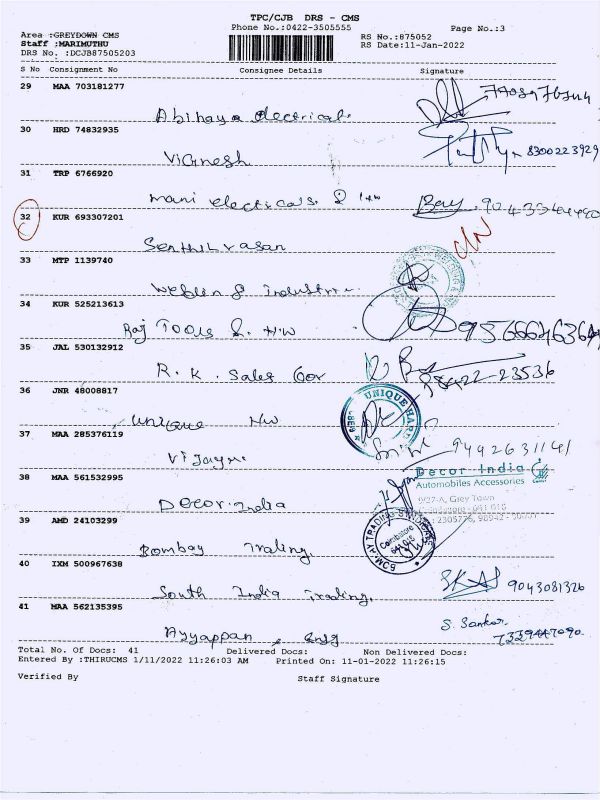 TPC/CJB DRS - CMS
Phone No.:0422-3505555
Page No.:3
Area :GREYDOWN CMS
Staff :MARIMUTHU
DRS No. :DCJB87505203
RS No.:875052
RS Date:11-Jan-2022
S No Consignment No Consignee Details Signature
29 MAA 703181277
Abinaya electricals
30 HRD 74832935
Vignesh 8300223929
31 TRP 6766920
mani electricals &
32 KUR 693307201
Senthilvasan
33 MTP 1139740
34 KUR 525213613
Raj Tools & H/W
35 JAL 530132912
R.K. Sales Cor
36 JNR 48008817
unique HW UNIQUE
37 MAA 285376119
38 MAA 561532995
Decor India
Decor India
Automobiles Accessories
9/27-A, Grey Town
39 AMD 24103299
Bombay Trading
Coimbatore
40 IXM 500967638
South India Trading. SKAS 9043081326
41 MAA 562135395
Ayyappan Engg S. Sankar
Total No. Of Docs: 41 Delivered Docs: Non Delivered Docs:
Entered By :THIRUCMS 1/11/2022 11:26:03 AM Printed On: 11-01-2022 11:26:15
Verified By Staff Signature